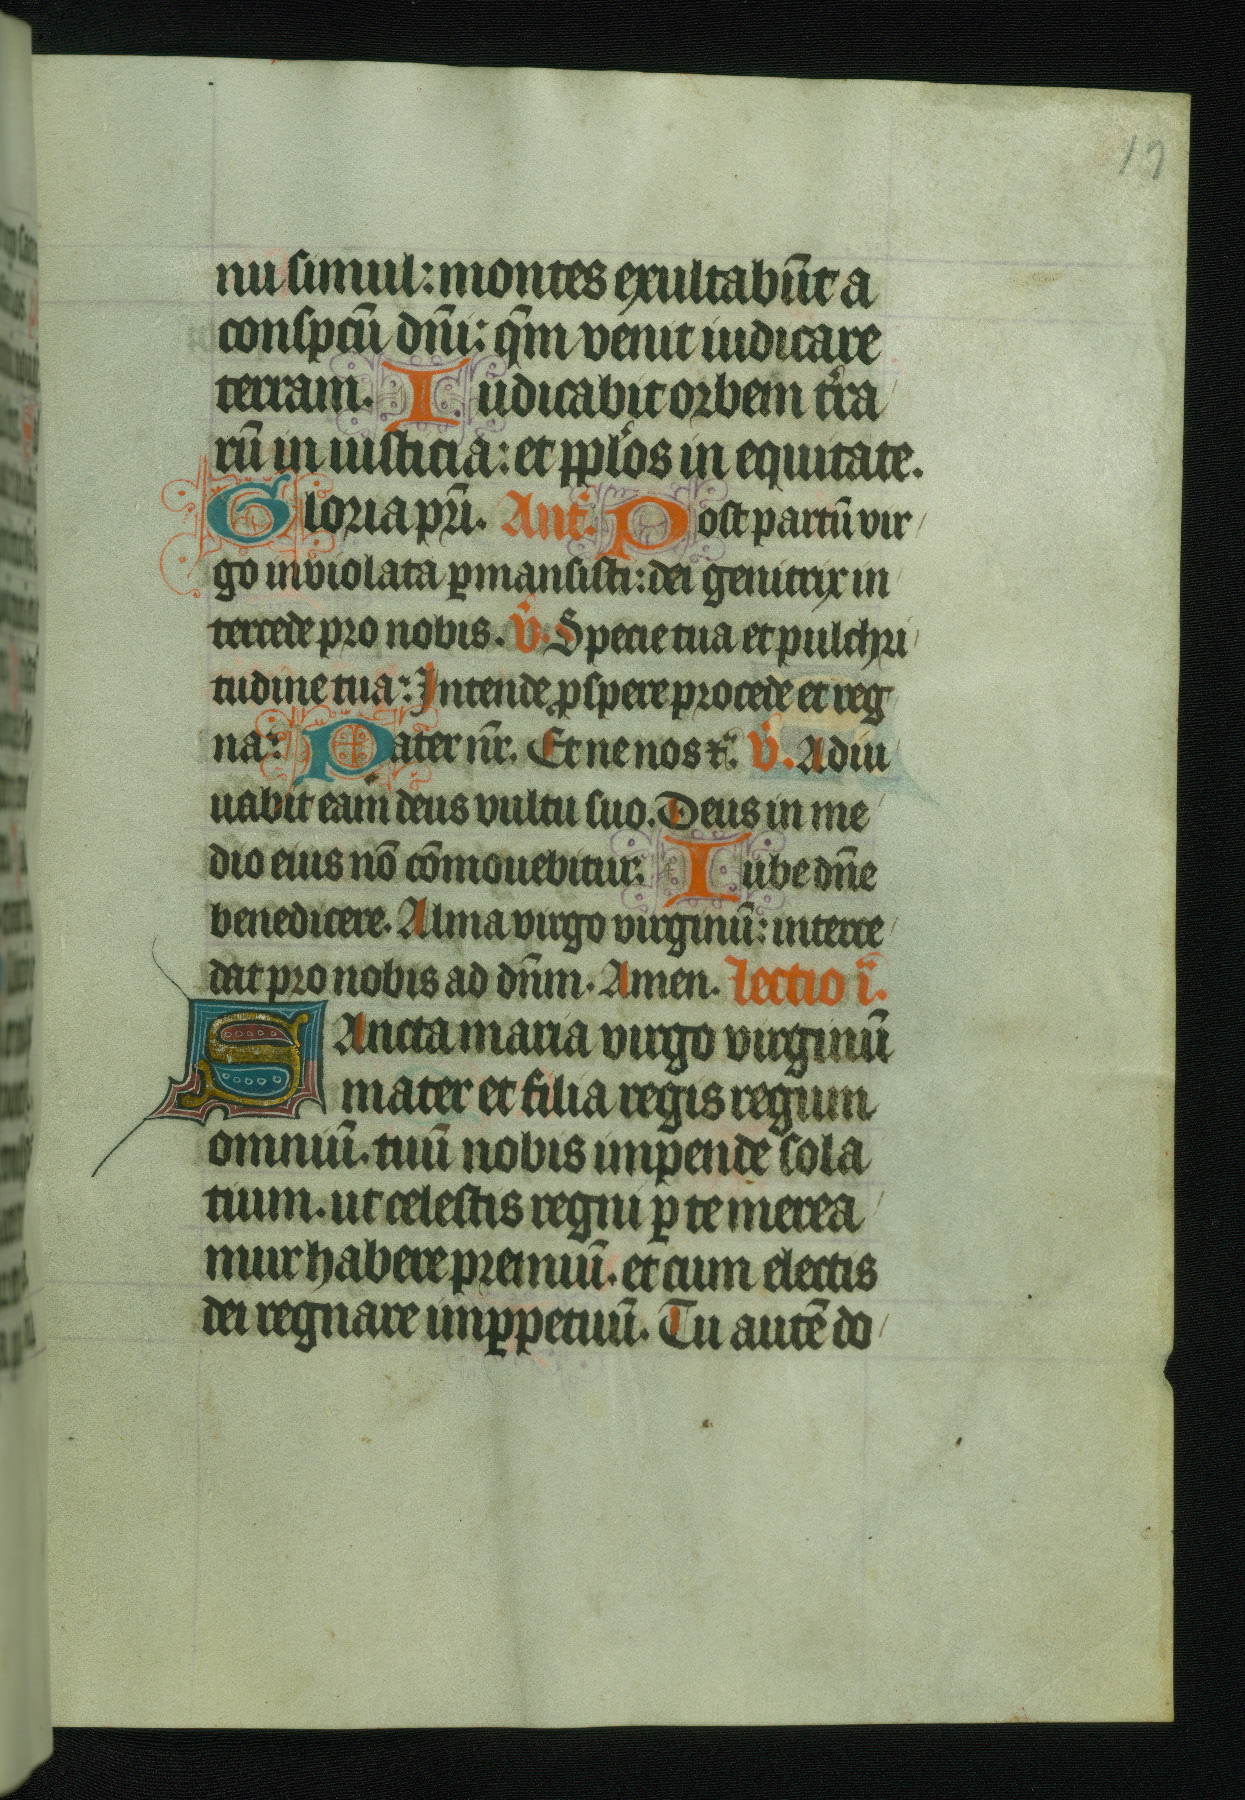 19
nu simul: montes exultabūt a
conspcū dn̄i: qm̄ venit iudicare
terram. Iudicabit orbem t̄ra
rū in iusticia: et pplōs in equitate.
Gloria pr̄i. Ant̄. Post partū vir
go inviolata ꝑmansisti: dei genitrix in
tercede pro nobis. v̄. Specie tua et pulchri
tudine tua: Intende ꝓspere procede et reg
na: Pater nr̄. Et ne nos ⁊c̄. v̄. Adiu
uabit eam deus vultu suo. Deus in me
dio eius nō cōmouebitur. Iube dn̄e
benedicere. Alma virgo virginū: interce
dat pro nobis ad dn̄m. Amen. lectio i.
SAncta maria virgo virginū
mater et filia regis regum
omniū. tuū nobis impende sola
tium. ut celestis regni ꝑ te merea
mur habere premiū. et cum electis
dei regnare imꝑpetuū. Tu autē do